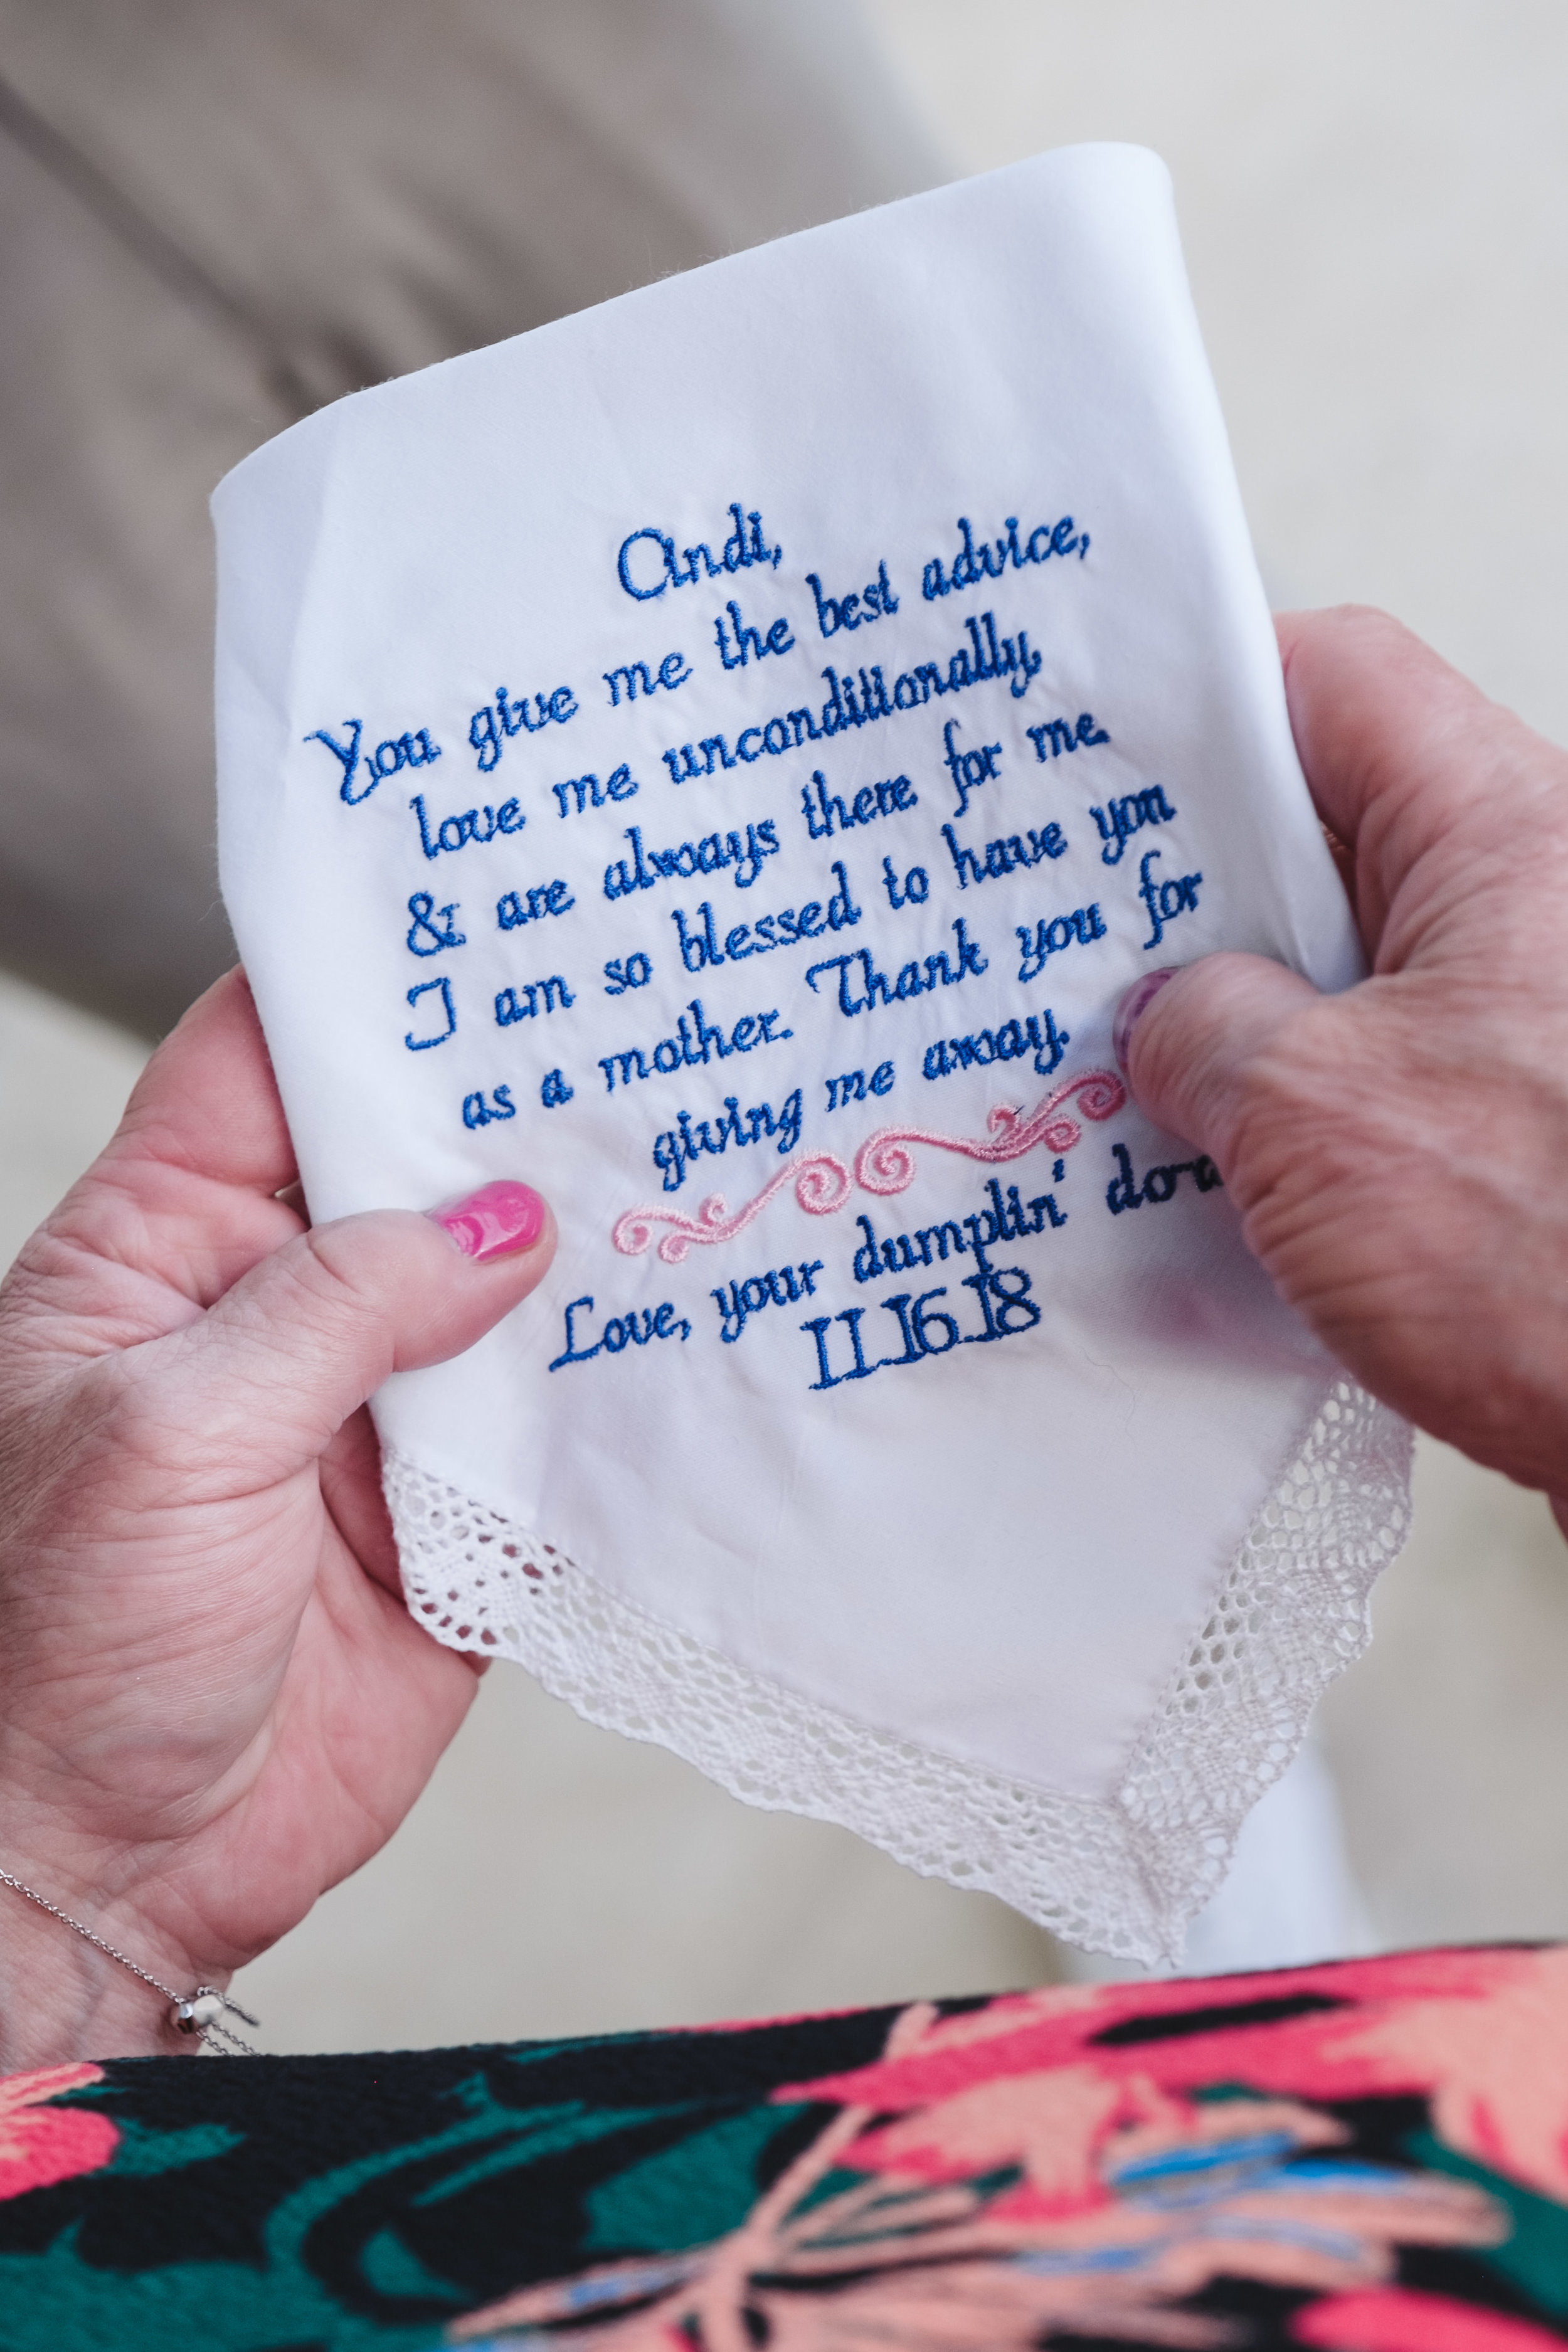 Andi,
You give me the best advice,
love me unconditionally,
& are always there for me.
I am so blessed to have you
as a mother. Thank you for
giving me away.
Love, your dumplin'
11.16.18